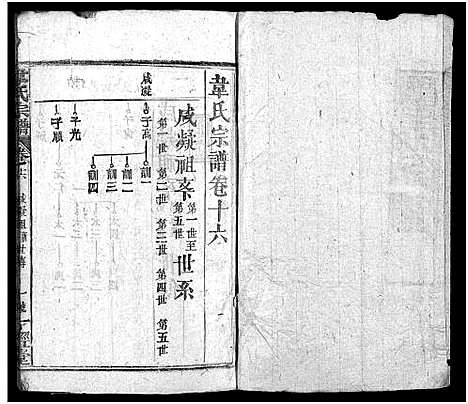 韋氏宗譜卷十六
咸凝祖支第一世至第五世世系
第一世 第二世 第三世 第四世 第五世
咸凝
子高 訓一
訓二
訓三
訓四
子光
子順
氏宗譜 卷十六 咸凝祖
一經堂